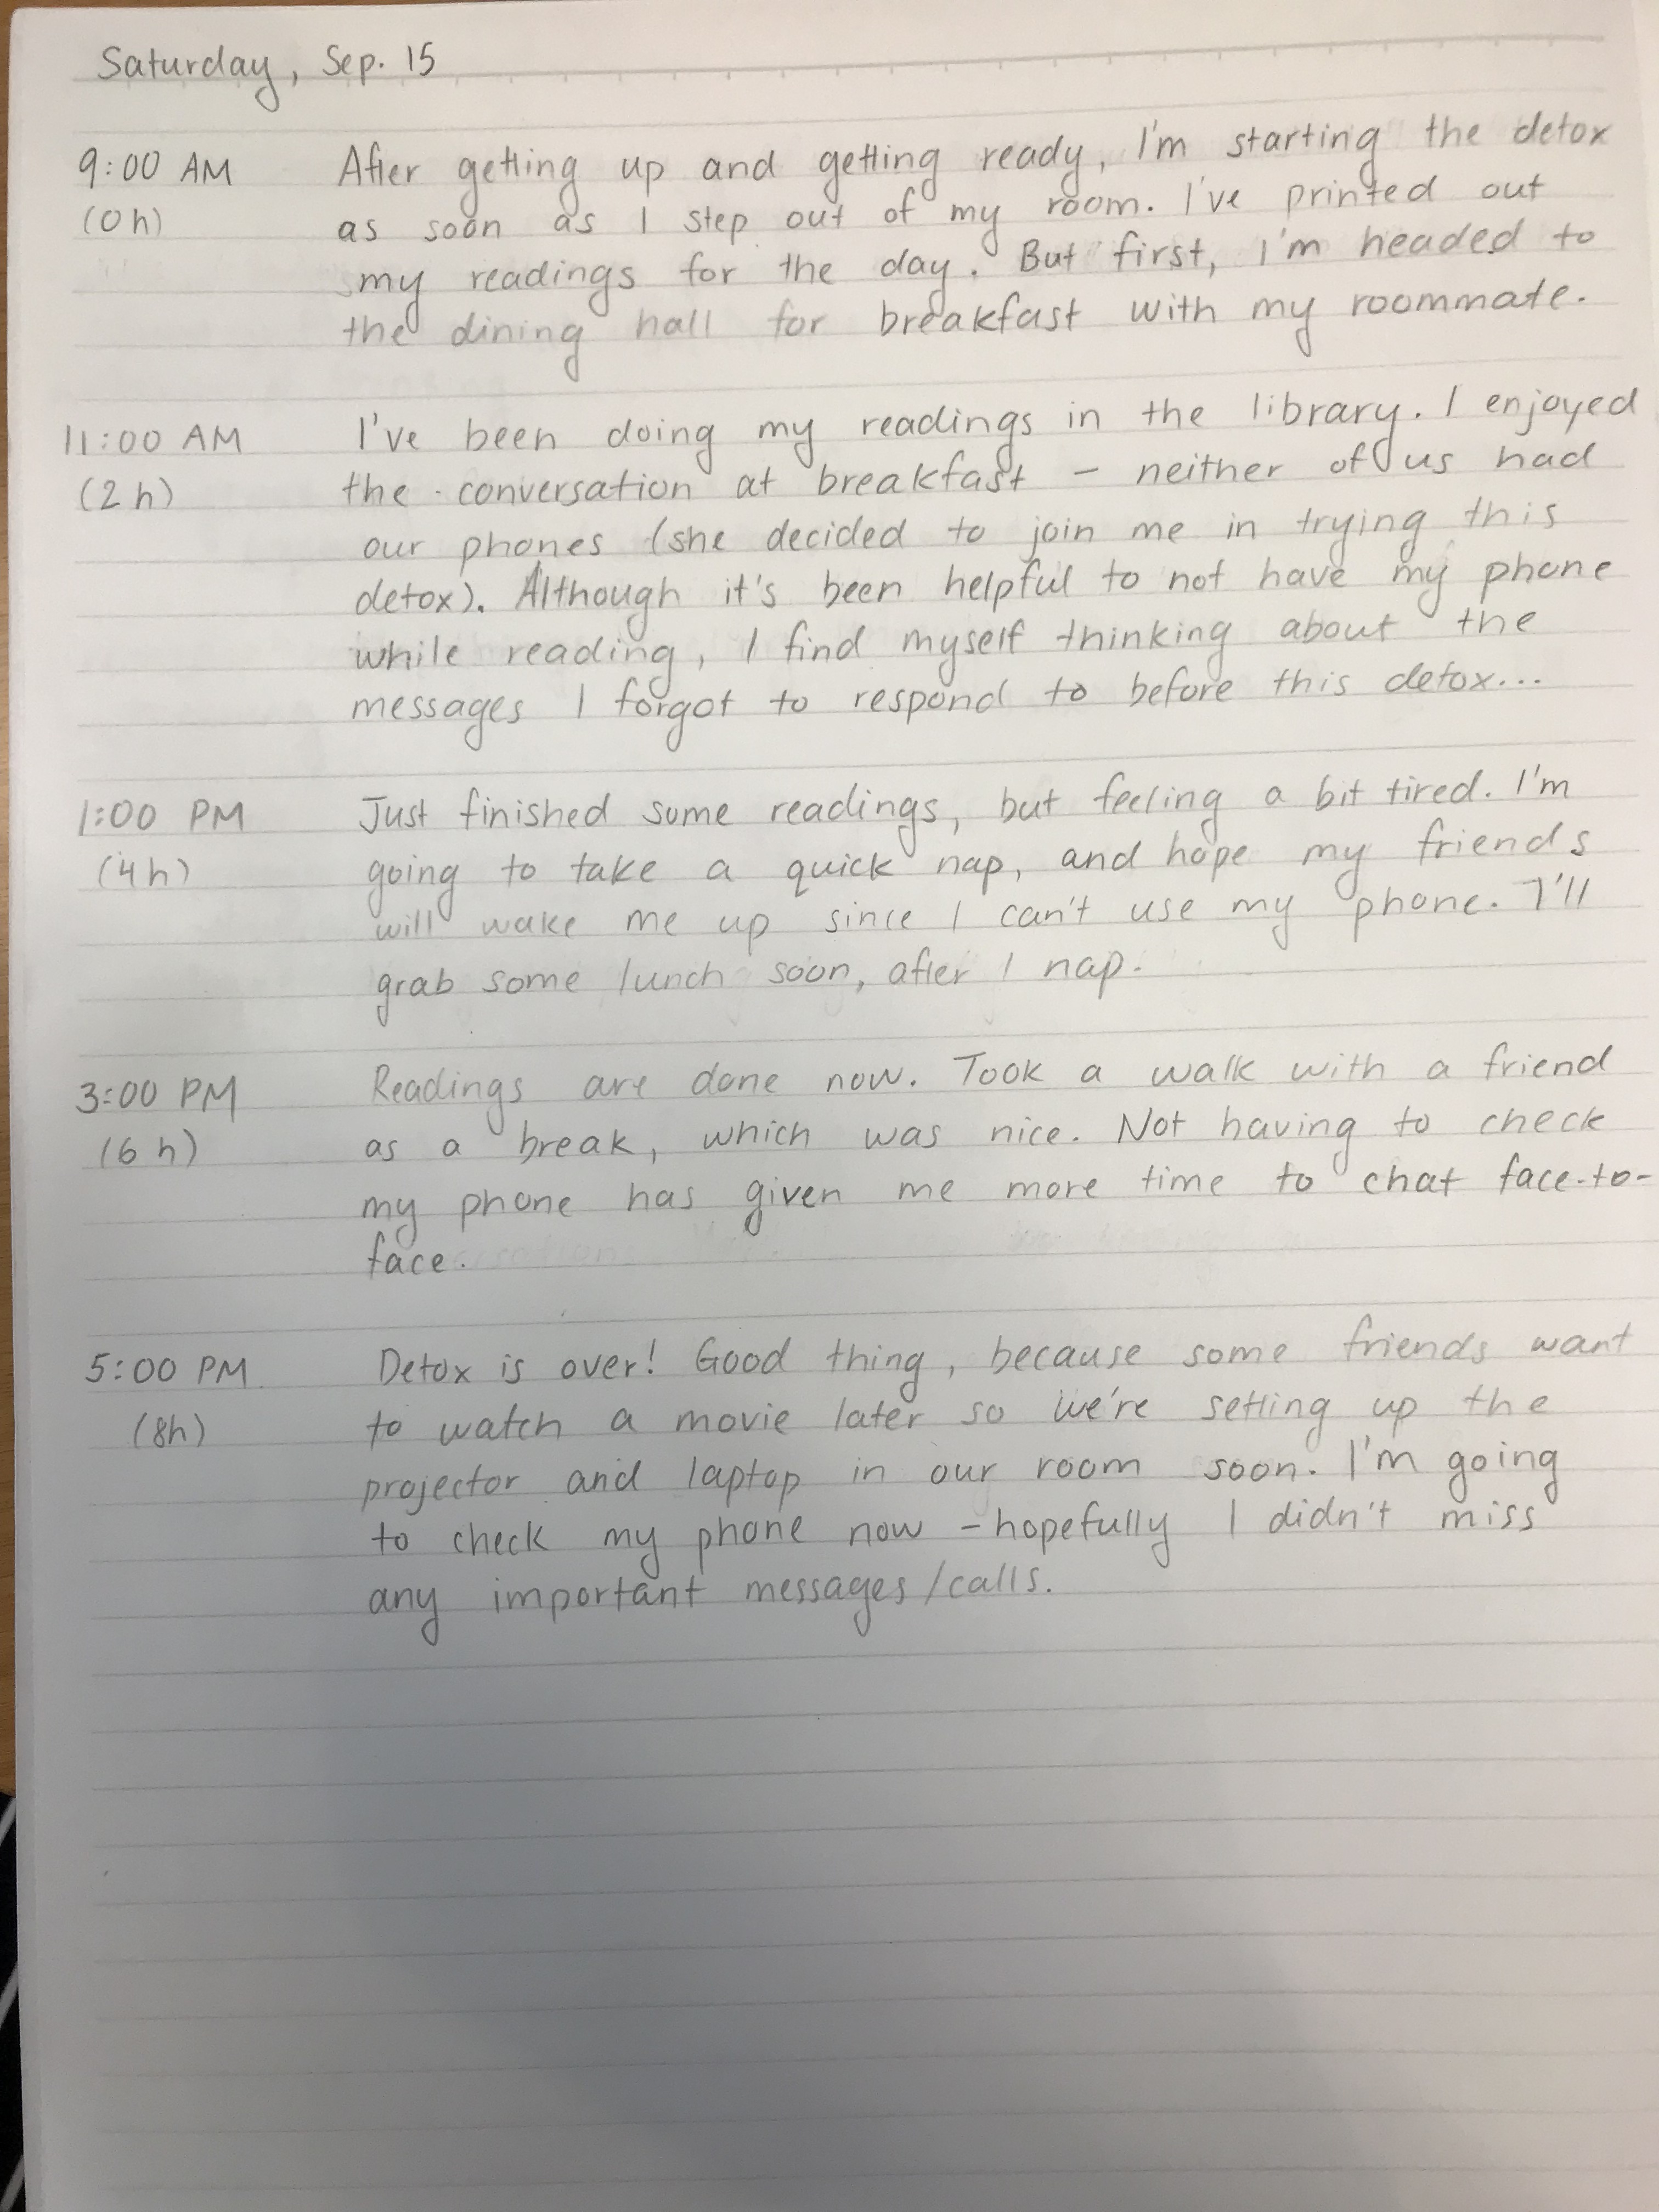 Saturday, Sep. 15
9:00 AM After getting up and getting ready, I'm starting the detox
(0h) as soon as I step out of my room. I've printed out
my readings for the day. But first, I'm headed to
the dining hall for breakfast with my roommate.
11:00 AM I've been doing my readings in the library. I enjoyed
(2h) the conversation at breakfast – neither of us had
our phones (she decided to join me in trying this
detox). Although it's been helpful to not have my phone
while reading, I find myself thinking about the
messages I forgot to respond to before this detox...
1:00 PM Just finished some readings, but feeling a bit tired. I'm
(4h) going to take a quick nap, and hope my friends
will wake me up since I can't use my phone. I'll
grab some lunch soon, after I nap.
3:00 PM Readings are done now. Took a walk with a friend
(6h) as a break, which was nice. Not having to check
my phone has given me more time to chat face-to-
face.
5:00 PM Detox is over! Good thing, because some friends want
(8h) to watch a movie later so we're setting up the
projector and laptop in our room soon. I'm going
to check my phone now – hopefully I didn't miss
any important messages/calls.